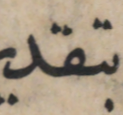 بتقدي